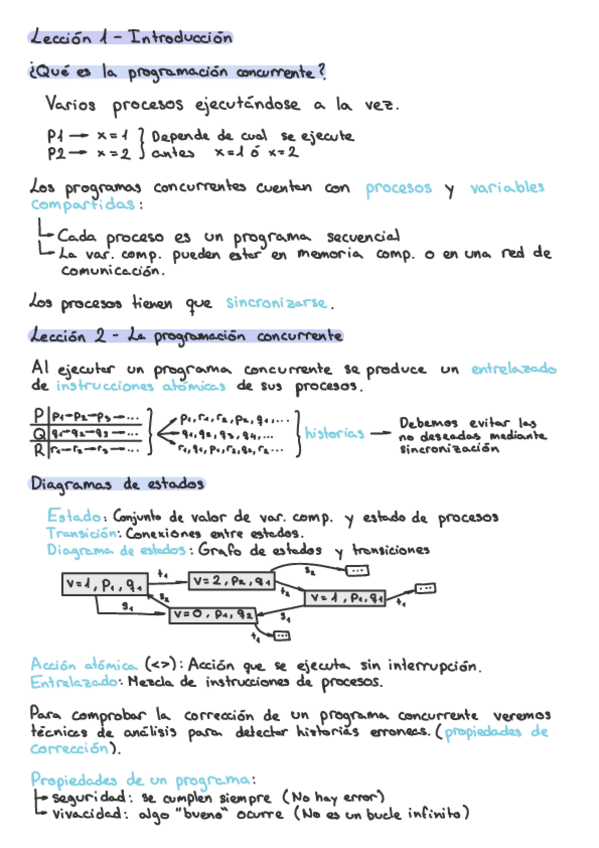 Lección 1 - Introducción
¿Qué es la programación concurrente?
Varios procesos ejecutándose a la vez.
P1 → x=1 } Depende de cual se ejecute
P2 → x=2 } antes x=1 ó x=2
Los programas concurrentes cuentan con procesos y variables
compartidas:
Cada proceso es un programa secuencial
La var. comp. pueden estar en memoria comp. o en una red de
comunicación.
Los procesos tienen que sincronizarse.
Lección 2 - La programación concurrente
Al ejecutar un programa concurrente se produce un entrelazado
de instrucciones atómicas de sus procesos.
P | p1-p2-p3 → ... p1, r1, r2, p2, q1, ... Debemos evitar las
Q | q1-q2-q3 → ... q1, q2, q3, q4, ... historias → no deseadas mediante
R | r1-r2-r3 → ... r1, q1, p1, r2, q2, r2, ... sincronización
Diagramas de estados
Estado: Conjunto de valor de var. comp. y estado de procesos
Transición: Conexiones entre estados.
Diagrama de estados: Grafo de estados y transiciones
v=1, p1, q1 t1 v=2, p2, q1 s2 ...
s1 s2 t2 v=1, p1, q1 t1 ...
v=0, p1, q2 s1
t1 ...
Acción atómica (<>): Acción que se ejecuta sin interrupción.
Entrelazado: Mezcla de instrucciones de procesos.
Para comprobar la corrección de un programa concurrente veremos
técnicas de análisis para detectar historias erroneas. (propiedades de
corrección).
Propiedades de un programa:
seguridad: se cumplen siempre (No hay error)
vivacidad: algo "bueno" ocurre (No es un bucle infinito)